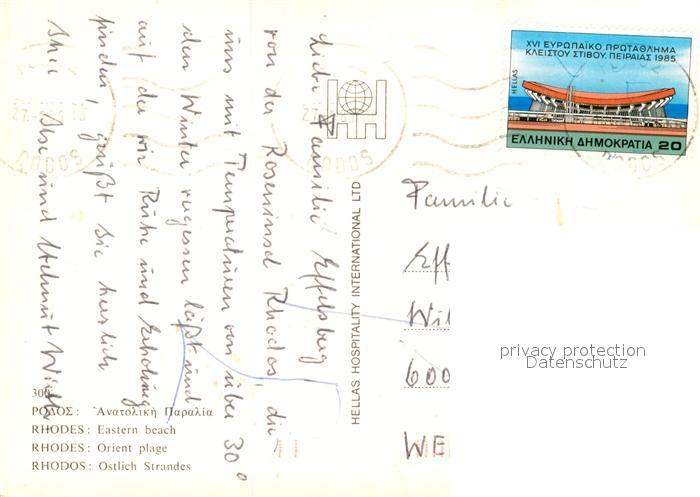 XVI ΕΥΡΩΠΑΪΚΟ ΠΡΩΤΑΘΛΗΜΑ
ΚΛΕΙΣΤΟΥ ΣΤΙΒΟΥ, ΠΕΙΡΑΙΑΣ 1985
HELLAS
ΕΛΛΗΝΙΚΗ ΔΗΜΟΚΡΑΤΙΑ 20
Liebe Familie Effelsberg!
von der Roseninsel Rhodos, die
uns mit Temperaturen von über 30°
den Winter vergessen läßt und
auf der wir Ruhe und Erholung
finden, grüßt Sie herzlich
Ihre Ilse und Helmut
HELLAS HOSPITALITY INTERNATIONAL LTD
Familie
Eff
Wil
600
WE
privacy protection
Datenschutz
300
ΡΟΔΟΣ: Ἀνατολική Παραλία
RHODES: Eastern beach
RHODES: Orient plage
RHODOS: Ostlich Strandes